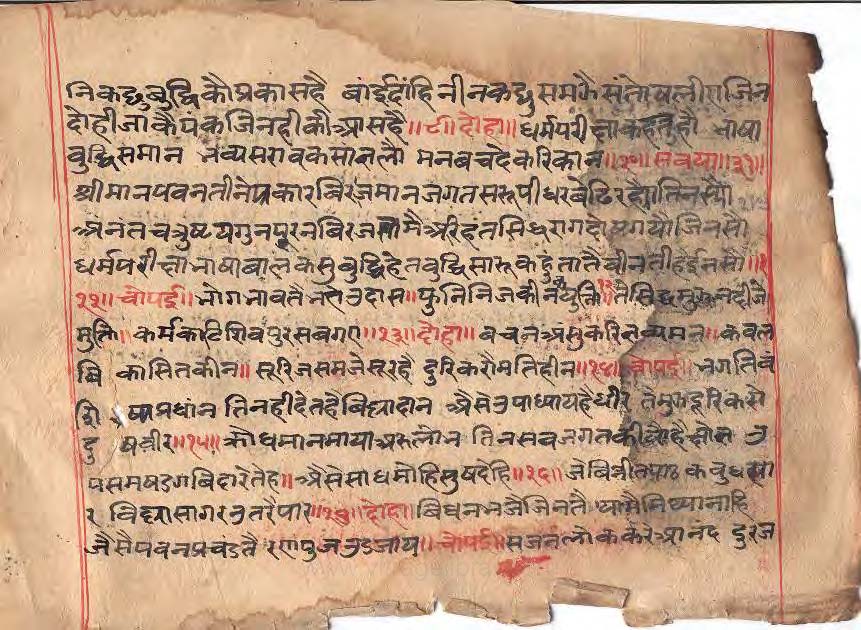 निकछुबुद्धिकौप्रकासहै बांईदांहिनीनकछुसमझैसंतोषलीएजिन
दोहीजाकैपंकजिनहीकीआसहै॥८॥दोहा॥धर्मपरीक्षाकहतुहौ भाषा
बुद्धिसमान भव्यसरावकसांभलौ मनबचदेकरिकान॥१०॥सवया॥३१॥
श्रीमानपवनतीनेप्रकारबिरजमानजगतसरूपीधरबेढिरह्यौतिनस्यौ
अनंतचत्रुष्टयगुनपूरनबिरजमांनैअरिहंतसिधरागदोषगयौजिनसौ
धर्मपरीक्षाभाषाबालकसुबुद्धिहेतबुद्धिसारूकहुंतातैबीनतीहईनसौ॥
११॥चोपई॥भोगभावतैभएउदास॥फुनिनिजकी तेसिद्ध
मुक्ति॥कर्मकाटिशिवपुरसबगए॥१३॥दोहा॥बचनअंसुकरि केवल
कासितकीन॥सूरिजसमजेसूरहै दुरिकरौमतिहीन॥१४॥चोपई॥भगतिवं
प्रधांन तिनहीदेतहैबिद्यादान अैसेउपाध्यायहैधीर तेमुझदूरिकरौ
दु षबीर॥१५॥क्रौधमानमायाअरुलोभ तिनसबजगतकी
पसमषडगबिदारेतेह॥अैसेसाधमोहिसुषदेहि॥१६॥जेबिनीतपाठकबुध
र बिद्यासागरउतरैपार॥१७॥दोहा॥बिघनभजैजिनतै यामैमिथ्यानाहि
जैसैपवनप्रचंडतै रणपुजउडजाय॥चोपई॥सजनलोककरेआनंद दुरज